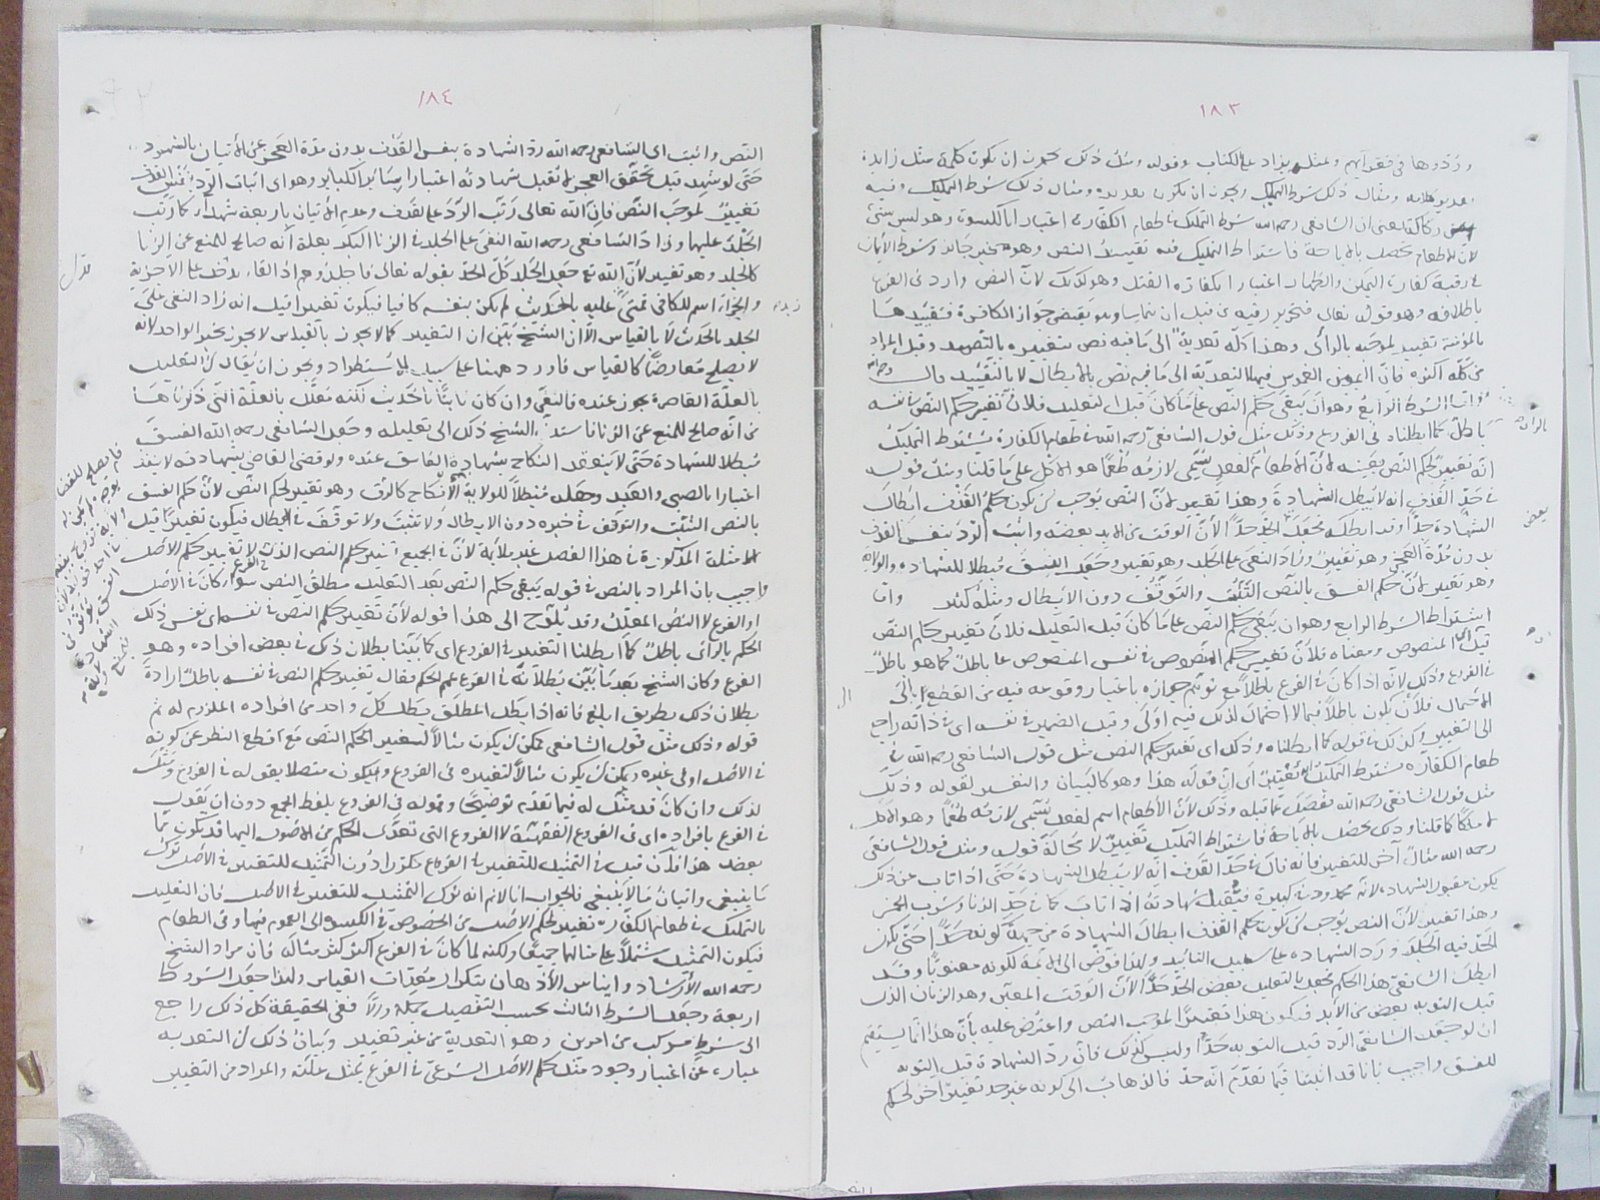 ١٨٣
وردوها في قعرابهم وبمثله يزاد على الكتاب وقوله ومثل ذلك يحتمل ان يكون كلمة مثل زايدة
ومثال ذلك شرط التمليك ويجوز ان يكون ومثال ذلك شرط التمليك وفيه
ركاكة يعني ان الشافعي رحمه الله شرط التمليك في طعام الكفارة اعتبارا بالكسوة وهو ليس بشئ
لان الاطعام يحصل بالاباحة فاشتراط التمليك فيه تغيير النص وهو غير جائز وشرط الايمان
في رقبة كفارة اليمين والظهار اعتبارا بكفارة القتل وهو كذلك لان النص وارد في الفرع
باطلاقه وهو قوله تعالى فتحرير رقبة من قبل ان يتماسا وهو يقتضي جواز الكافرة فتقييدها
بالمؤمنة تغيير لموجبه بالرأي وهذا كله تعدية الى ما فيه نص بتغييره بالتقييد وقيل المراد
من كله اكثره فان اليمين الغموس فيها التعدية الى ما فيه نص بالابطال لا بالتقييد قال
واما الشرط الرابع وهو ان يبقى حكم النص على ما كان قبل التعليل فلان تغيير حكم النص في نفسه
باطل كما ابطلناه في الفروع وذلك مثل قول الشافعي رحمه الله في طعام الكفارة يشترط التمليك
انه تغيير لحكم النص بعينه لان الاطعام اسم لفعل يسمى لازمه طعما هو الاكل على ما قلنا ومثل قوله
في حد القذف انه لا يبطل الشهادة وهذا تغيير لان النص يوجب ان يكون حكم القذف ابطال
الشهادة حدا وقد ابطله فجعل الجلد حدا لان الوقت من الابد بعضه واثبت الرد بنفس القذف
بدون مدة العجز وهو تغيير وزاد النفي على الجلد وهو تغيير وجعل الفسق مبطلا للشهادة والولاية
وهو تغيير لان حكم الفسق بالنص التثبت والتوقف دون الابطال ومثله كثير واما
اشتراط الشرط الرابع وهو ان يبقى حكم النص على ما كان قبل التعليل فلان تغيير حكم النص
قيل اي المنصوص ومعناه فلان تغيير حكم المنصوص في نفس المنصوص عليه باطل كما هو باطل
في الفروع وذلك لانه اذا كان في الفرع باطلا مع توهم جوازه باعتبار وقوعه فيه من القطع الى
الاحتمال فلان يكون باطلا فيما لا احتمال لذلك فيه اولى وقيل الضمير في نفسه اي في ذاته راجع
الى التغيير وكذلك في قوله كما ابطلناه وذلك اي تغيير حكم النص مثل قول الشافعي رحمه الله في
طعام الكفارة يشترط التمليك انه تغيير اي ان قوله هذا وهو كالبيان والتفسير لقوله وذلك
مثل قول الشافعي رحمه الله يفصل عما قبله وذلك لان الاطعام اسم لفعل يسمى لازمه طعما وهو الاكل
لا ملكا كما قلنا وذلك يحصل بالاباحة فاشتراط التمليك تغيير لا محالة قوله ومثل قول الشافعي
رحمه الله مثال آخر للتغيير فانه قال في حد القذف انه لا يبطل الشهادة حتى اذا تاب عن ذلك
يكون مقبول الشهادة لانه محدود في كبيرة فتقبل شهادته اذا تاب كما في حد الزنا وشرب الخمر
وهذا تغيير لان النص يوجب ان يكون حكم القذف ابطال الشهادة من جهة كونه حدا حتى يكون
الحد فيه الجلد ورد الشهادة على سبيل التابيد ولهذا فوض الى الائمة لكونه معنويا وقد
ابطل الشافعي هذا الحكم فجعل بالتعليل بعض الحد حدا لان الوقت المعين وهو الزمان الذي
قبل التوبة بعض من الابد فيكون هذا تغييرا لموجب النص واعترض عليه بان هذا انما يستقيم
ان لو جعل الشافعي الرد قبل التوبة حدا وليس كذلك فان رد الشهادة قبل التوبة
للفسق واجيب بانا قد اثبتنا فيما تقدم انه حد فالذهاب الى كونه غير حد تغيير آخر لحكم
بالرأي
بعض
١٨٤
النص واثبت اي الشافعي رحمه الله رد الشهادة بنفس القذف بدون مدة العجز عن الاتيان بالشهود
حتى لو شهد قبل تحقق العجز لم تقبل شهادته اعتبارا بسائر الكبائر وهو اي اثبات الرد بنفس القذف
تغيير لموجب النص فان الله تعالى رتب الرد على القذف وعدم الاتيان باربعة شهداء كما رتب
الجلد عليهما وزاد الشافعي رحمه الله النفي على الجلد في الزنا البكر بعلة انه صالح للمنع عن الزنا
كالجلد وهو تغيير لان الله تع جعل الجلد كل الحد بقوله تعالى فاجلدوهم اذ الفاء يدخل على الاجزية
والجزاء اسم للكافي فمتى عليه بالحديث لم يكن بنفسه كافيا فيكون تغييرا قيل انه زاد النفي على
الجلد بالحديث لا بالقياس الا ان الشيخ بين ان التغيير كما لا يجوز بالقياس لا يجوز بخبر الواحد لانه
لا يصلح معارضا كالقياس فاورد ههنا على سبيل الاستطراد ويجوز ان يقال ان التعليل
بالعلة القاصرة يجوز عنده فالنفي وان كان ثابتا بالحديث لكنه معلل بالعلة التي ذكرناها
من انه صالح للمنع عن الزنا فاسند الشيخ ذلك الى تعليله وجعل الشافعي رحمه الله الفسق
مبطلا للشهادة حتى لا ينعقد النكاح بشهادة الفاسق عنده ولو قضى القاضي بشهادته لا ينفذ
اعتبارا بالصبي والعبد وجعله مبطلا للولاية الانكاح كالرق وهو تغيير لحكم النص لان حكم الفسق
بالنص التثبت والتوقف في خبره دون الابطال ولا تثبت ولا توقف في الابطال فيكون تغييرا قيل
الامثلة المذكورة في هذا الفصل غير ملائمة لان في الجميع تغيير حكم النص الذي في الفرع لا تغيير حكم الاصل
واجيب بان المراد بالنص في قوله يبقى حكم النص بعد التعليل مطلق النص سواء كان في الاصل
او الفرع لا النص المعلل وقد يلوح الى هذا قوله لان تغيير حكم النص في نفسه اي نفس ذلك
الحكم بالرأي باطل كما ابطلنا التغيير في الفروع اي كما بينا بطلان ذلك في بعض افراده وهو
الفرع وكان الشيخ بعد ما بين بطلانه في الفرع عمم الحكم فقال تغيير حكم النص في نفسه باطل ارادة
بطلان ذلك بطريق ابلغ فانه اذا بطل المطلق يبطل كل واحد من افراده الملازم له ثم
قوله وذلك مثل قول الشافعي يمكن ان يكون مثالا لتغيير الحكم النص مع قطع النظر عن كونه
في الاصل او في غيره ويمكن ان يكون مثالا لتغييره في الفروع ويكون متصلا بقوله في الفروع ومثله
لذلك وان كان قد مثل له فيما تقدم توضيحا وقوله في الفروع بلفظ الجمع دون ان يقول
في الفرع بافراده اي في الفروع الفقهية لا الفروع التي تعدى الحكم من الاصول اليها قد يكون مما
يعضد هذا فان قيل في التمثيل للتغيير في الفروع مكررا دون التمثيل للتغيير في الاصل ترك
ما ينبغي واتيان ما لا ينبغي فالجواب انا لا نم انه ترك التمثيل للتغيير في الاصل فان التعليل
بالتمليك في طعام الكفارة تغيير لحكم الاصل من الخصوص في الكسوة الى العموم فيها وفي الطعام
فيكون التمثيل مشتملا على مثالهما جميعا ولكنه لما كان في الفرع اكثر كثر مثاله فان مراد الشيخ
رحمه الله الارشاد وايناس الاذهان بتكرار مغيرات القياس ولهذا جعل الشروط
اربعة وجعل الشرط الثالث بحسب التفصيل جملة والا ففي الحقيقة كل ذلك راجع
الى شرط مركب من امرين وهو التعدية من غير تغيير وبيان ذلك ان التعدية
عبارة عن اعتبار وجود مثل حكم الاصل الشرعي في الفرع بمثل علته والمراد من التغيير